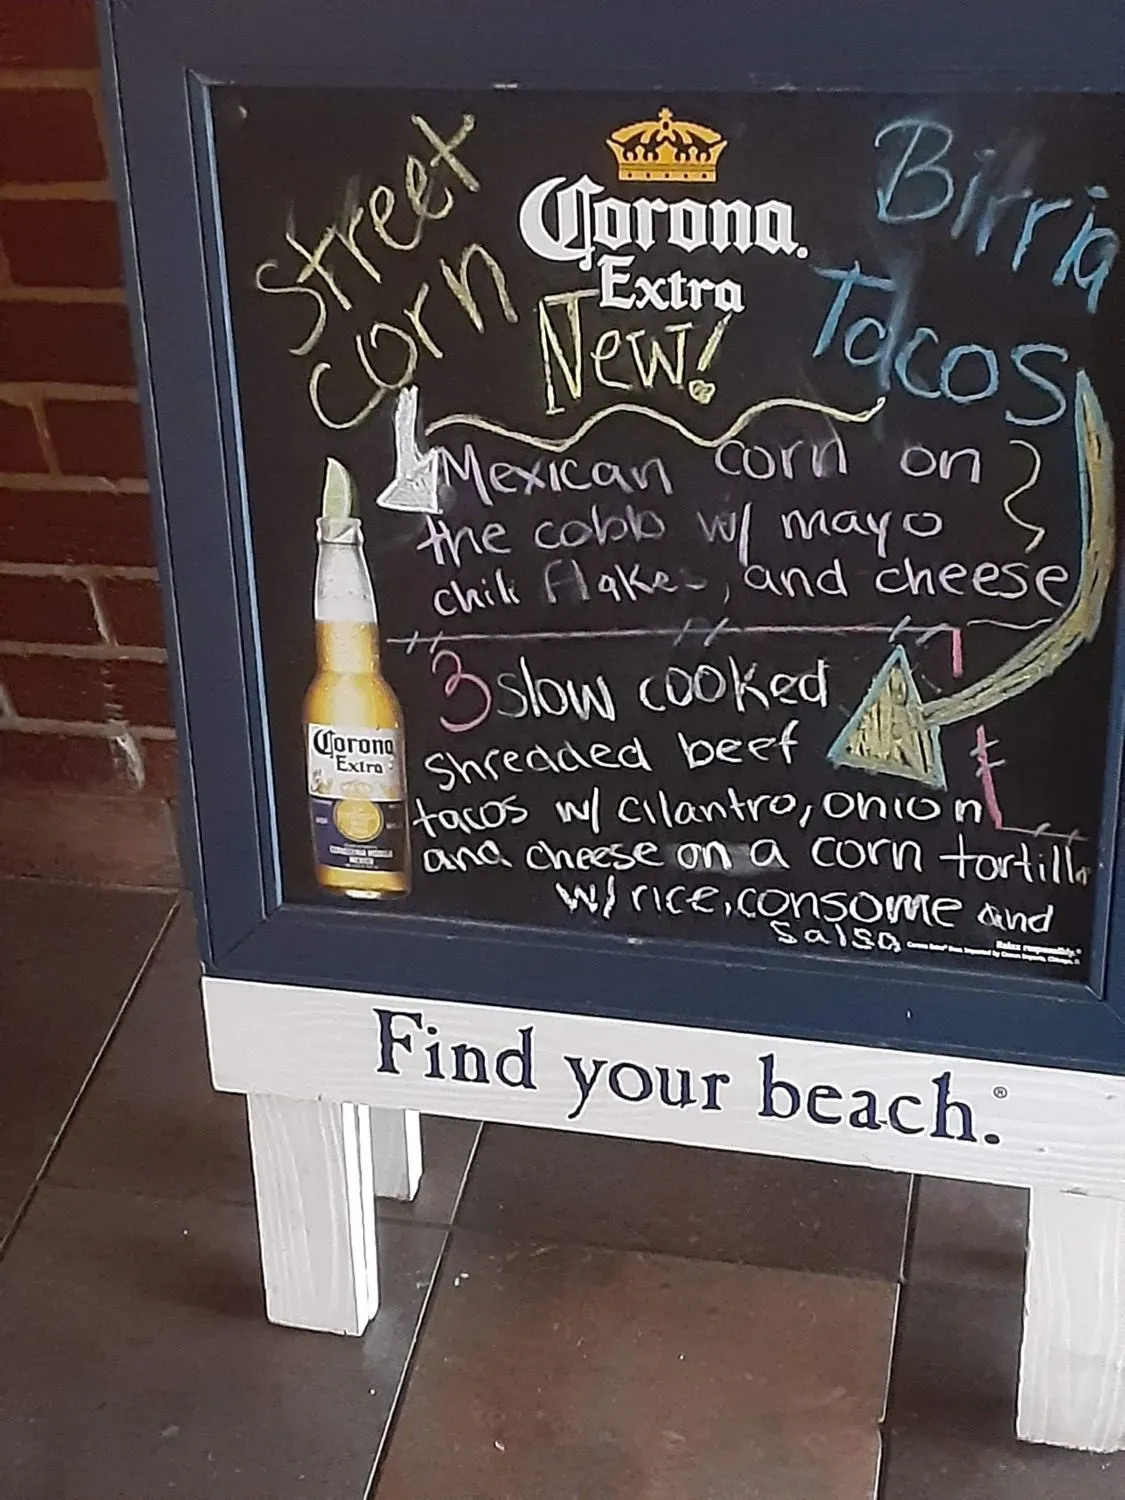 Street
Corn
Corona
Extra
New!
Birria
Tacos
Mexican corn on
the cobb w/ mayo
chili flakes, and cheese
3 slow cooked
shredded beef
tacos w/ cilantro, onion
and cheese on a corn tortilla
w/ rice, consome and
salsa
Corona
Extra
Relax responsibly.®
Find your beach.®